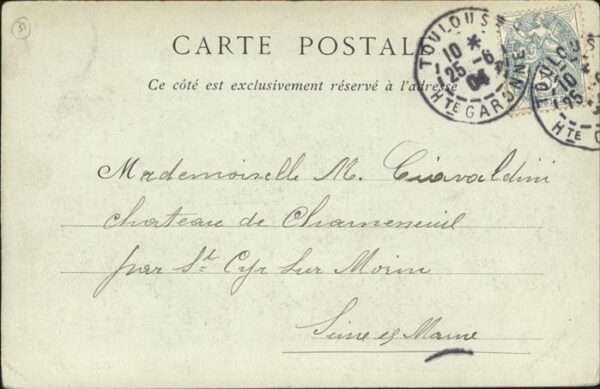 CARTE POSTALE
Ce côté est exclusivement réservé à l'adresse
TOULOUSE
10 *
25 -6
04
Hte GARONNE
TOULOU
10
25
Hte G
Mademoiselle M. Ciavaldini
chateau de Chameneuil
par St Cyr Sur Morin
Seine et Marne